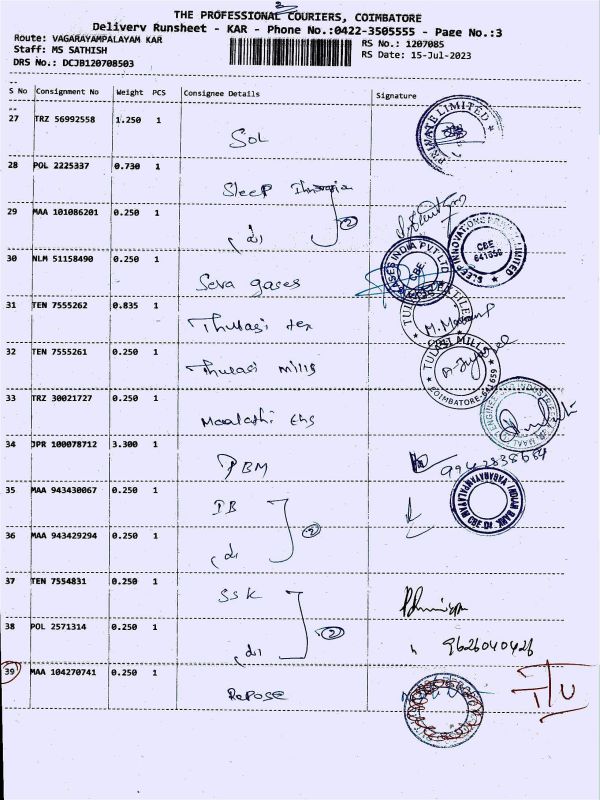 THE PROFESSIONAL COURIERS, COIMBATORE
Delivery Runsheet - KAR - Phone No.:0422-3505555 - Page No.:3
Route: VAGARAYAMPALAYAM KAR
RS No.: 1207085
Staff: MS SATHISH
RS Date: 15-Jul-2023
DRS No.: DCJB120708503
S No Consignment No Weight PCS Consignee Details Signature
27 TRZ 56992558 1.250 1
SOL
PRIVATE LIMITED
28 POL 2225337 0.730 1
Sleep
29 MAA 101086201 0.250 1
2
SLEEP INNOVATIONS PRIVATE LIMITED
CBE
641659
30 NLM 51158490 0.250 1
Seva gases
GASES INDIA PVT LTD
CBE
31 TEN 7555262 0.835 1
Thulasi tex
32 TEN 7555261 0.250 1
Thulasi mills
TULASI MILLS
COIMBATORE-641659
33 TRZ 30021727 0.250 1
Maalathi Eng
34 JPR 100078712 3.300 1
PBM
35 MAA 943430067 0.250 1
IB
VAGARAYAMPALAYAM INDIAN BANK
CBE.DT
36 MAA 943429294 0.250 1
2
37 TEN 7554831 0.250 1
SSK
38 POL 2571314 0.250 1
2
9626040426
39 MAA 104270741 0.250 1
Repose